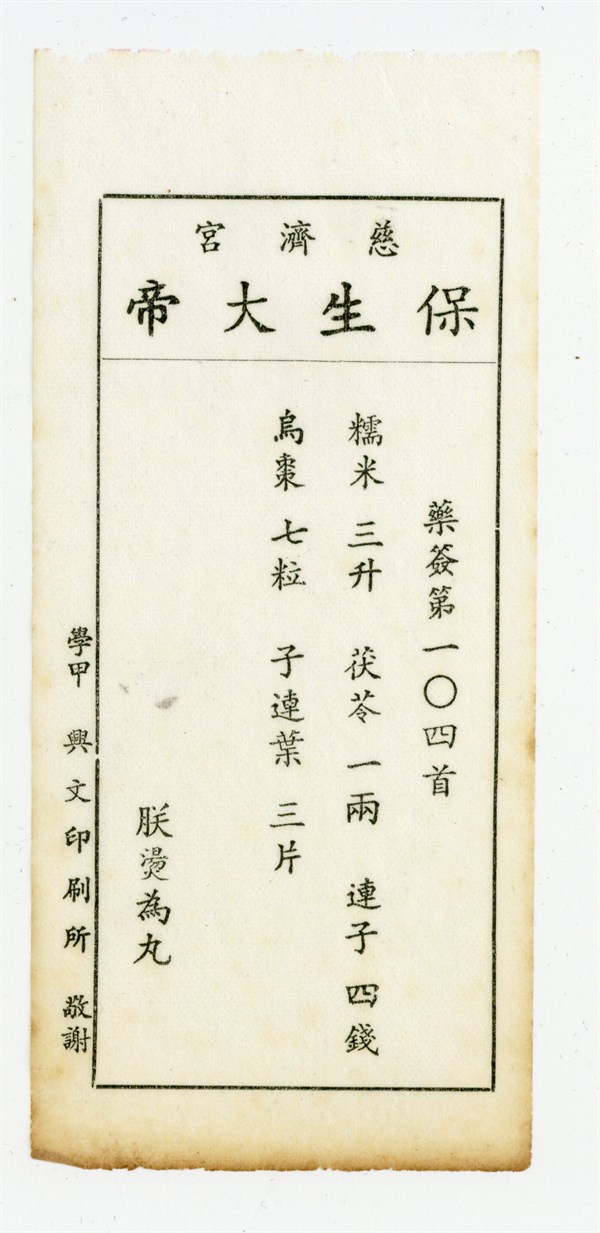 慈濟宮
保生大帝
藥簽第一〇四首
糯米 三升 茯苓 一兩 連子 四錢
烏棗 七粒 子連葉 三片
朕燙為丸
學甲 興文印刷所 敬謝